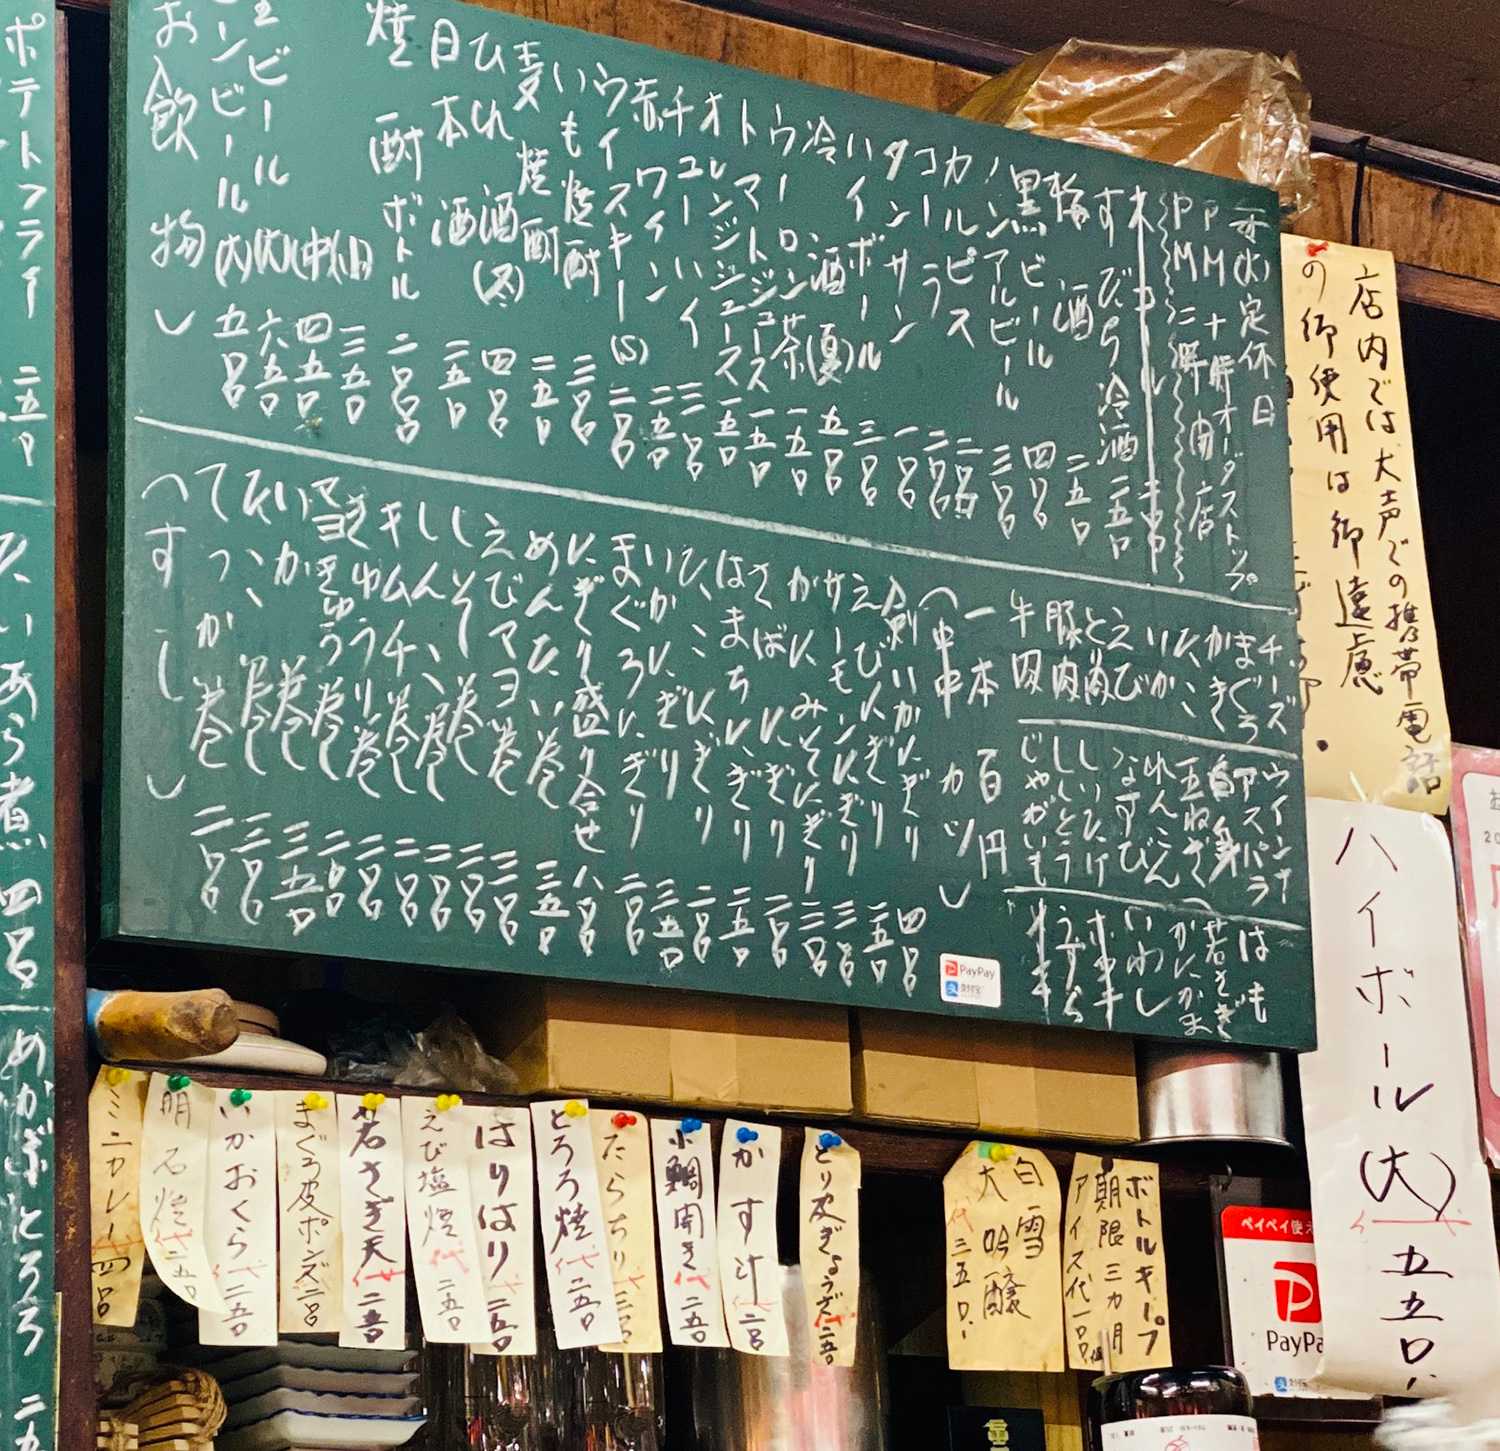 ポテトフライ 二五〇
たいあら煮 四〇〇
めかぶとろろ 二五
お飲物
ンビール(大) 五〇〇
生ビール(大) 六五〇
(中) 四五〇
(小) 三五〇
焼酎ボトル
日本酒 二五〇
ひれ酒(冬) 四〇〇
麦焼酎 二五〇
いも焼酎 三〇〇
ウイスキー(S) 二〇〇
赤ワイン 二五〇
チューハイ 三〇〇
オレンジジュース 一五〇
トマトジュース 一五〇
ウーロン茶 一五〇
冷酒(夏) 五〇〇
ハイボール 三〇〇
タンサン 一〇〇
コーラ 二〇〇
カルピス 二〇〇
ノンアルビール 三〇〇
黒ビール 四〇〇
梅酒 二五〇
すだち冷酒 二五〇
PM二時開店
PM十時オーダストップ
毎(火)定休日
(すし)
てっか巻 二〇〇
たこ巻し 三〇〇
いか巻し 三五〇
きゅうり巻 二〇〇
キムチ巻し 二〇〇
しんこ巻し 二〇〇
しそ巻し 二〇〇
えびマヨ巻 三〇〇
めんたい巻 三五〇
にぎり盛り合せ 八〇〇
まぐろにぎり 二〇〇
いかにぎり 二〇〇
たこにぎり 二五〇
はまちにぎり
さばにぎり
かにみそにぎり
サーモンにぎり
えびにぎり 二五〇
剣いかにぎり 四〇〇
(串カツ)
一本 百円
牛肉
豚肉
とり肉
えび
いか
たこ
かき
まぐろ
チーズ
じゃがいも
ししとう
しいたけ
なすび
れんこん
玉ねぎ
白身
アスパラ
ウインナ
キキ
うずら
いわし
かにかま
若さぎ
はも
PayPay
支付宝
店内では大声での携帯電話
の御使用は御遠慮
ハイボール(大) 五五〇
ミニカレー 四〇〇
明石焼 二五〇
いかおくら 二五〇
まぐろ皮ポンズ 二〇〇
若さぎ天 二五〇
えび塩焼 二五〇
はりはり 二五〇
とろろ焼 二五〇
たらちり 三〇〇
小鯛開き 二五〇
かす汁 二〇〇
とり皮ぎょうざ 二五〇
白雪
大吟醸
三五〇
ボトルキープ
期限三カ月
アイス代一〇〇
ペイペイ使え
PayPa